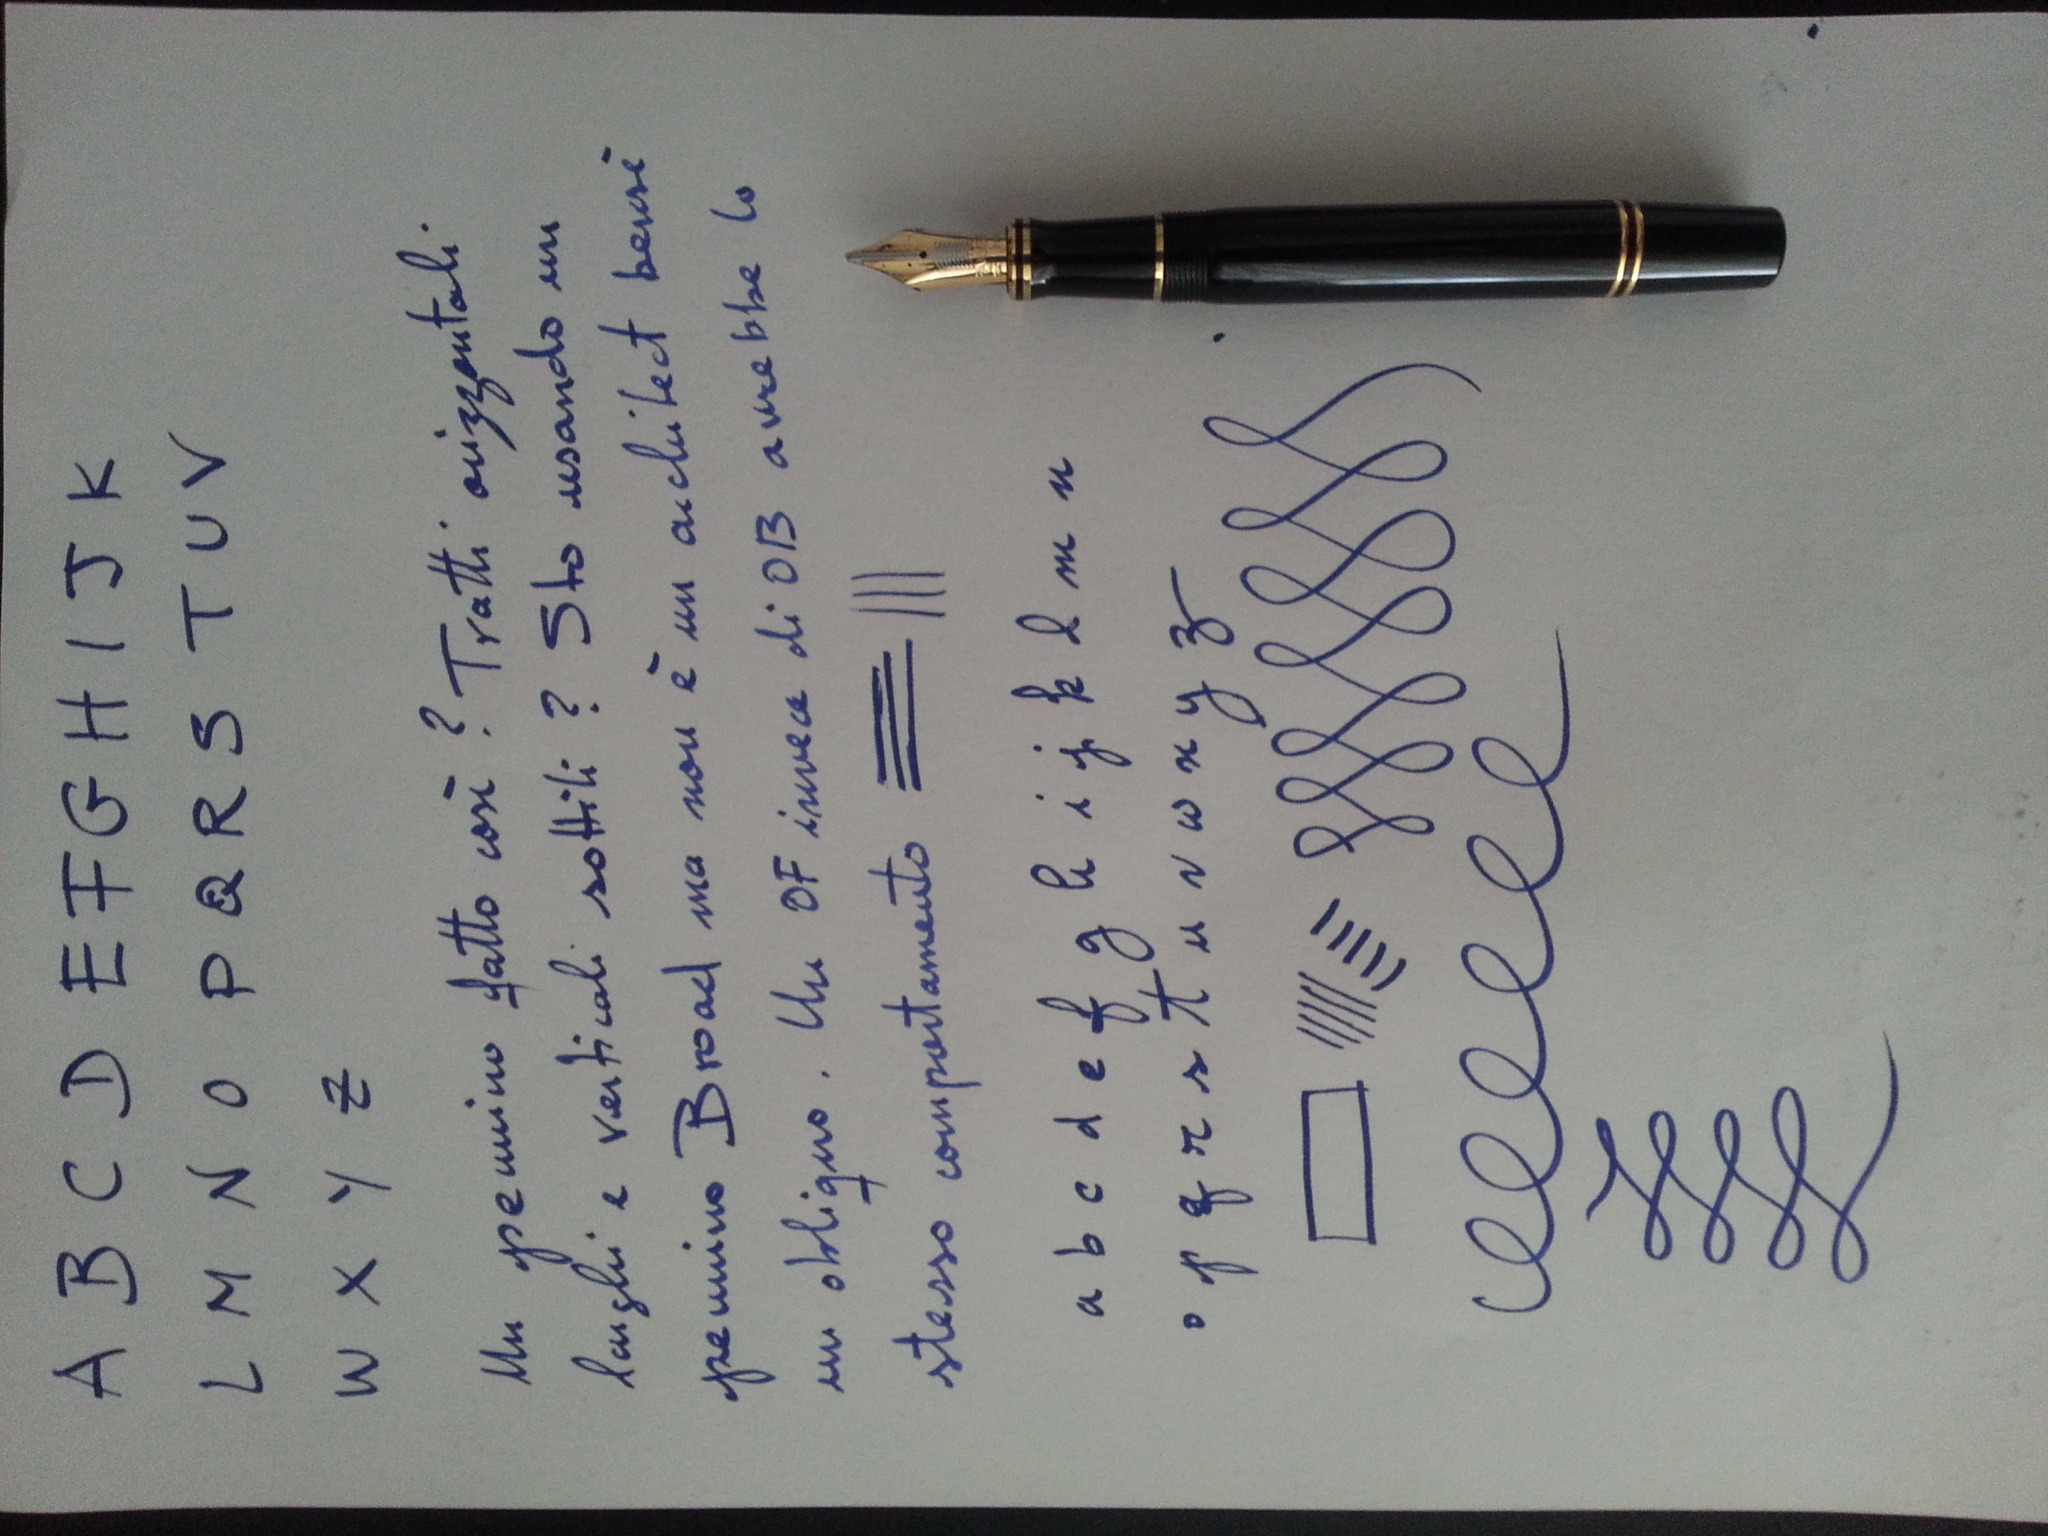 A B C D E F G H I J K
L M N O P Q R S T U V
W X Y Z
Un pennino fatto così ? Tratti orizzontali
larghi e verticali sottili ? Sto usando un
pennino Broad ma non è un architect bensì
un obliquo. Un OF invece di OB avrebbe lo
stesso comportamento
a b c d e f g h i j k l m n
o p q r s t u v w x y z